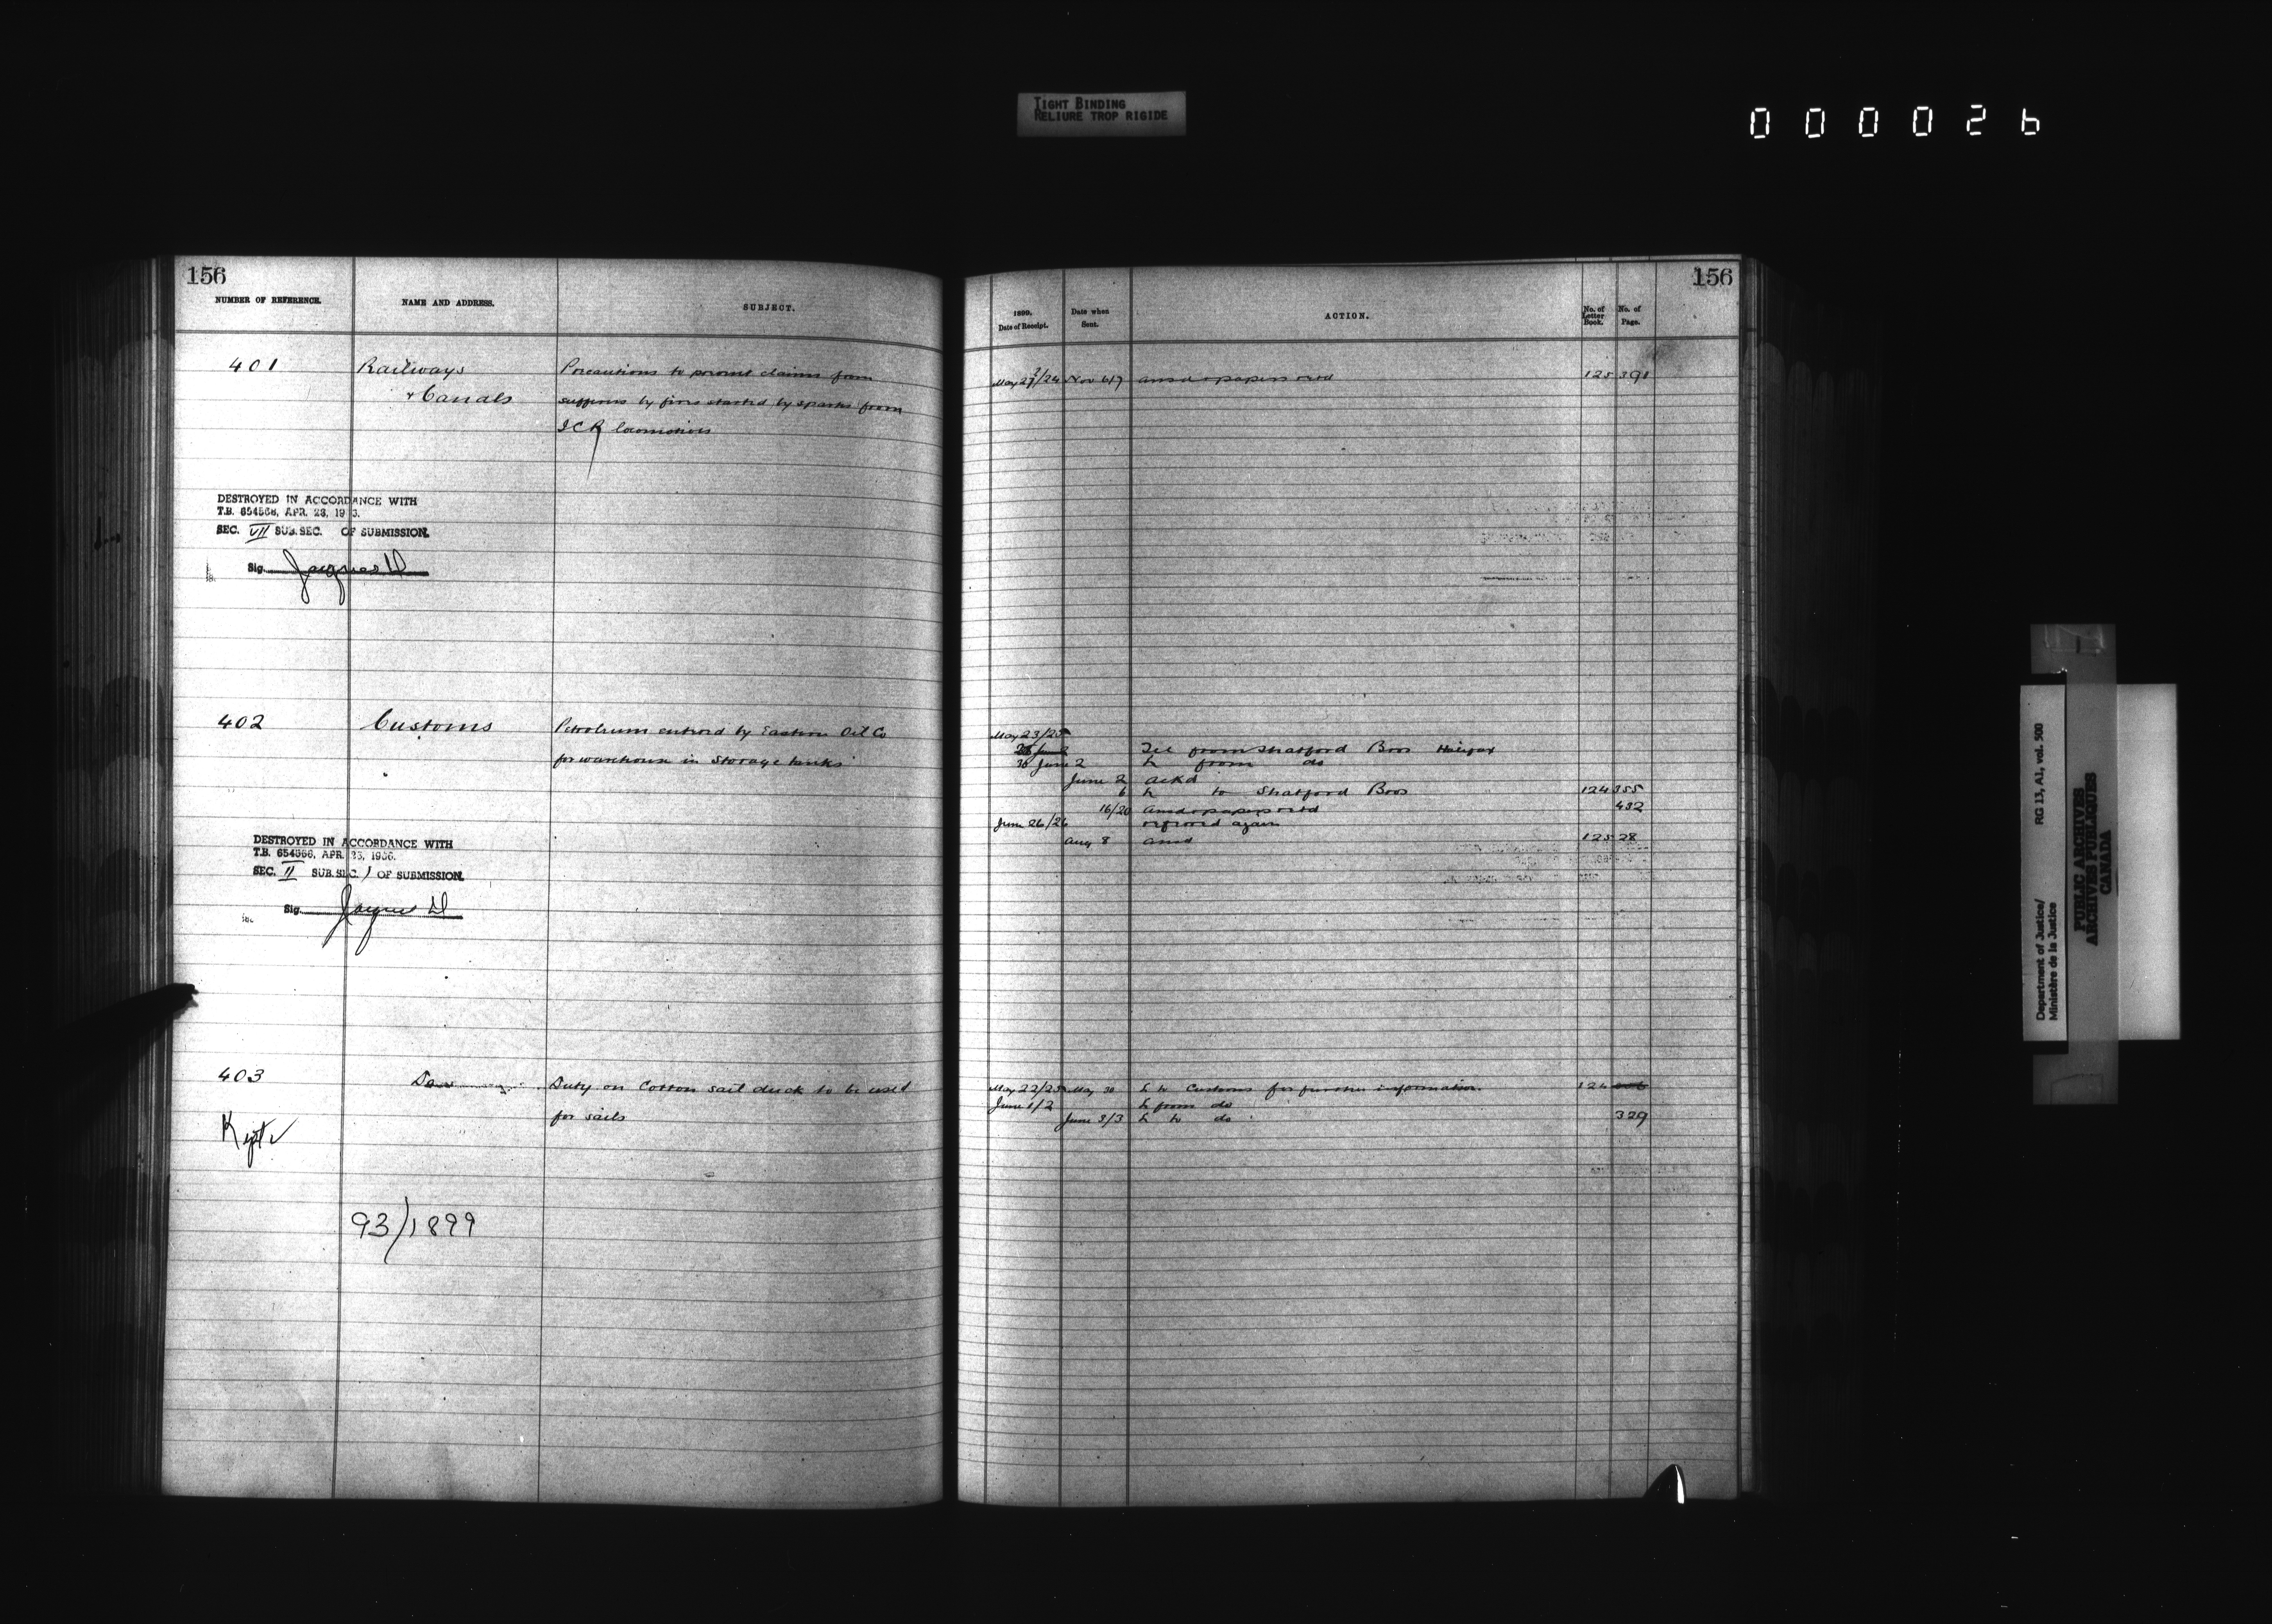 TIGHT BINDING
RELIURE TROP RIGIDE
000026
156
NUMBER OF REFERENCE.
NAME AND ADDRESS.
SUBJECT.
401
Railways
& Canals
Precautions to prevent claims from
sufferers by fires started by sparks from
ICR locomotives
DESTROYED IN ACCORDANCE WITH
T.B. 654566, APR. 23, 19
SEC. VII SUB. SEC. OF SUBMISSION.
Sig. Jacques D
402
Customs
Petroleum entered by Eastern Oil Co
for warehouse in storage tanks
DESTROYED IN ACCORDANCE WITH
T.B. 654566, APR. 23, 1966.
SEC. II SUB. SEC. 1 OF SUBMISSION.
Sig. Jacques D
403
Duty on Cotton sail duck to be used
for sails
93/1899
156
1899.
Date of Receipt.
Date when
Sent.
ACTION.
No. of
Letter
Book.
No. of
Page.
Nov 6/7 ansd & papers retd 125 391
May 23/25
Tel from Stratford Bros Halifax
30 June 2 L from do
June 2 ackd
6 L to Stratford Bros 124 355
16/20 ansd & papers retd 432
June 26/26 referred again
Aug 8 ansd 125 28
May 22/25 May 30 L to Customs for further information 124
June 1/2 L from do
June 3/3 L to do 329
Department of Justice/
Ministère de la Justice
RG 13, A1, vol. 500
PUBLIC ARCHIVES
ARCHIVES PUBLIQUES
CANADA